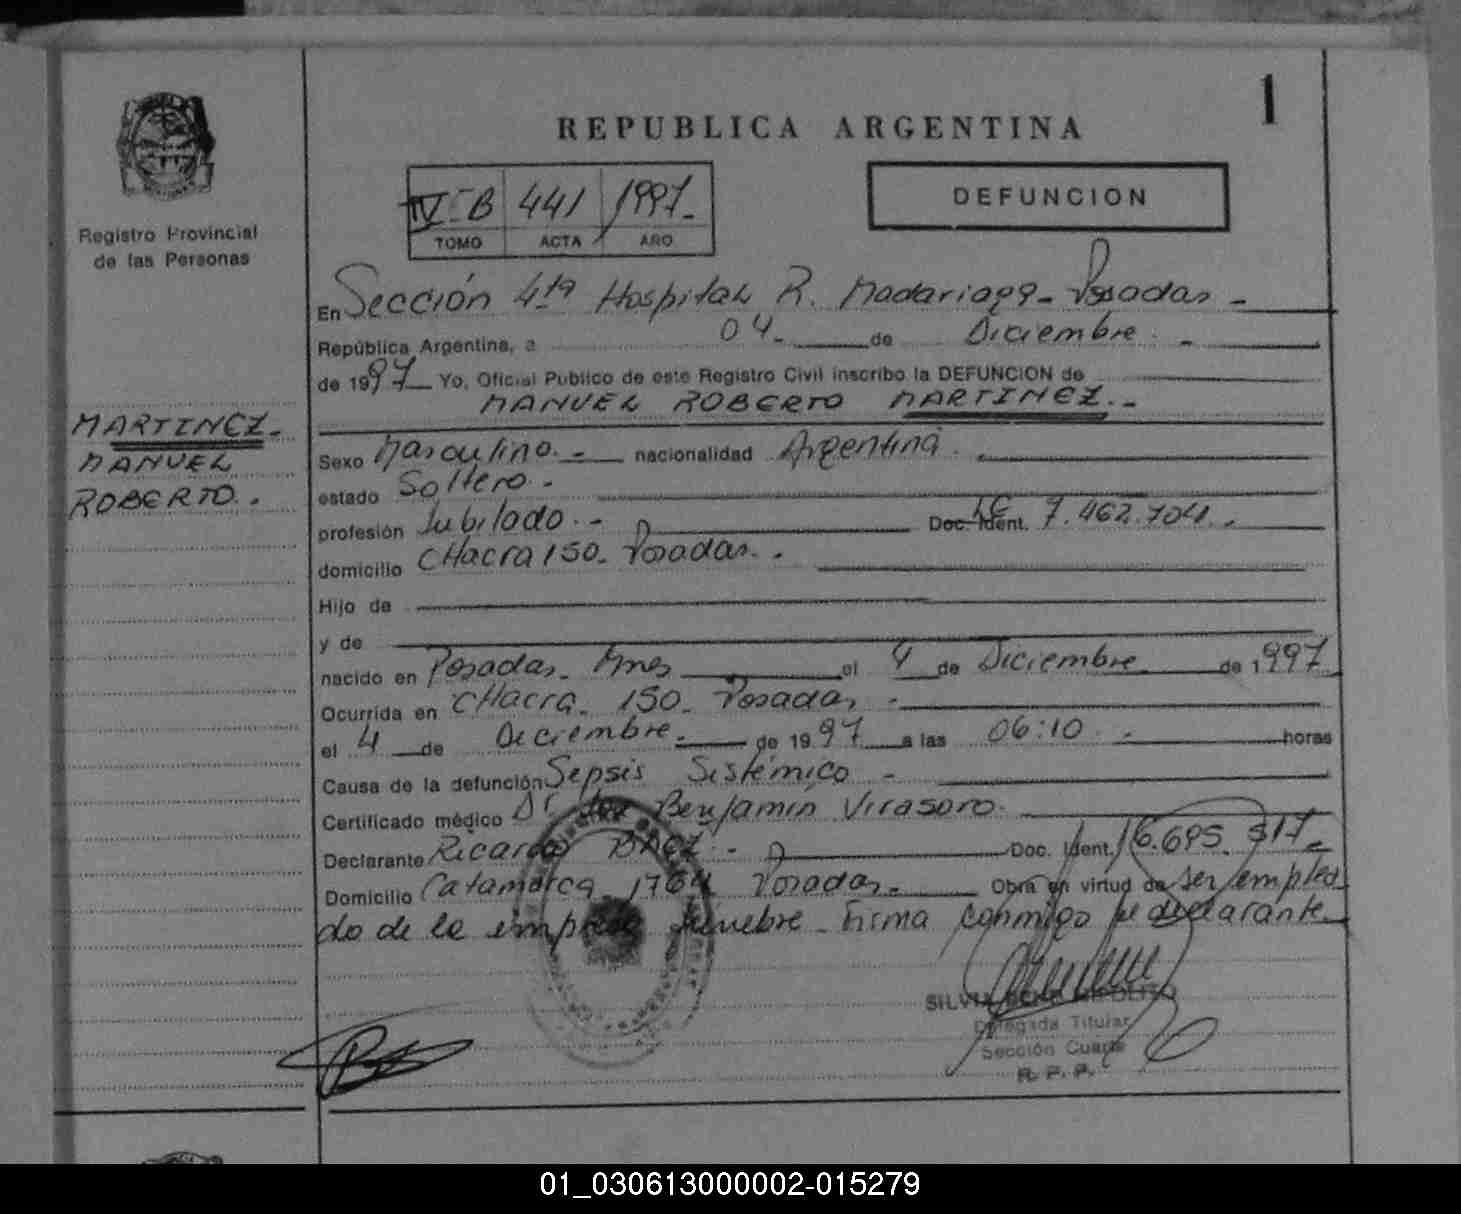 1
REPUBLICA ARGENTINA
IV-B 441 1997-
TOMO ACTA AÑO
DEFUNCION
Registro Provincial
de las Personas
MARTINEZ-
MANUEL
ROBERTO.
En Sección 4ta Hospital R. Madariaga - Posadas -
República Argentina, a 04- de Diciembre. -
de 1997 Yo, Oficial Publico de este Registro Civil inscribo la DEFUNCION de
MANUEL ROBERTO MARTINEZ.-
Sexo Masculino.- nacionalidad Argentina.
estado Soltero.-
profesión Jubilado.- Doc. Ident. LE 7.462.704.-
domicilio CHacra 150- Posadas.-
Hijo de
y de
nacido en Posadas- Mnes el 4 de Diciembre de 1997
Ocurrida en CHacra- 150- Posadas -
el 4 de Diciembre.- de 1997 a las 06:10.- horas
Causa de la defunción Sepsis Sistémico -
Certificado médico Dr. Benjamín Virasoro.
Declarante Ricardo BAEZ.- Doc. Ident. 16.695.517-
Domicilio Catamarca 1764 Posadas.- Obra en virtud de ser emplea
do de la empresa fúnebre - Firma conmigo el declarante-
SILVIA HIPOLITO
Delegada Titular
Sección Cuarta
R. P. P.
01_030613000002-015279